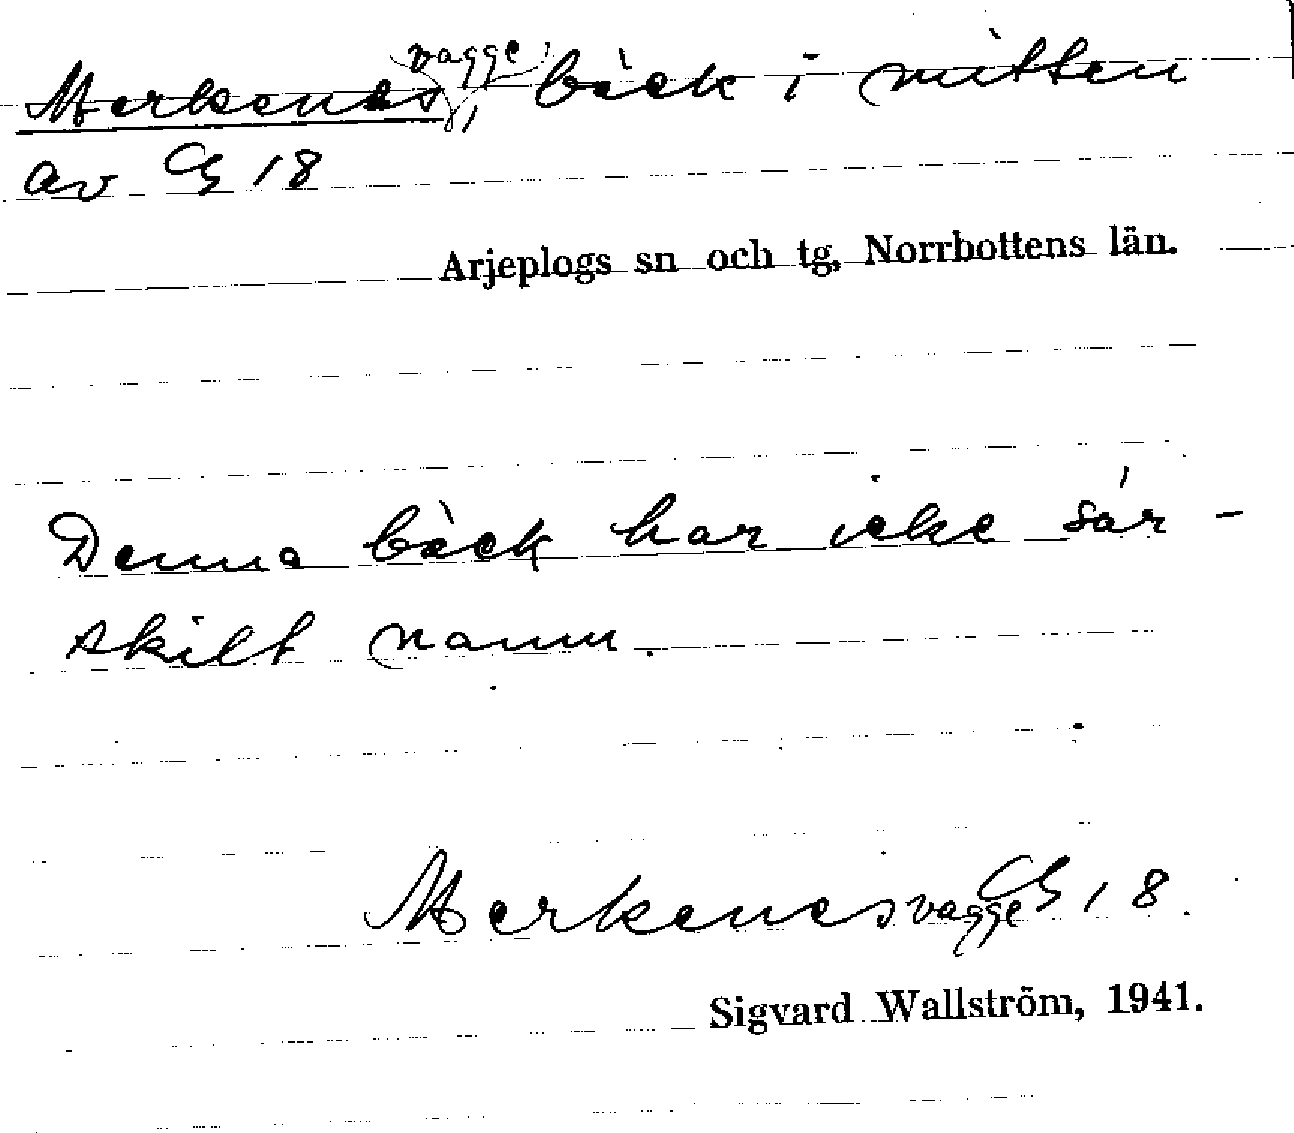 Merkenesvagge, bäck i mitten
av G 18
Arjeplogs sn och tg, Norrbottens län.
Denna bäck har icke sär-
skilt namn.
Merkenesvagge G 18.
Sigvard Wallström, 1941.